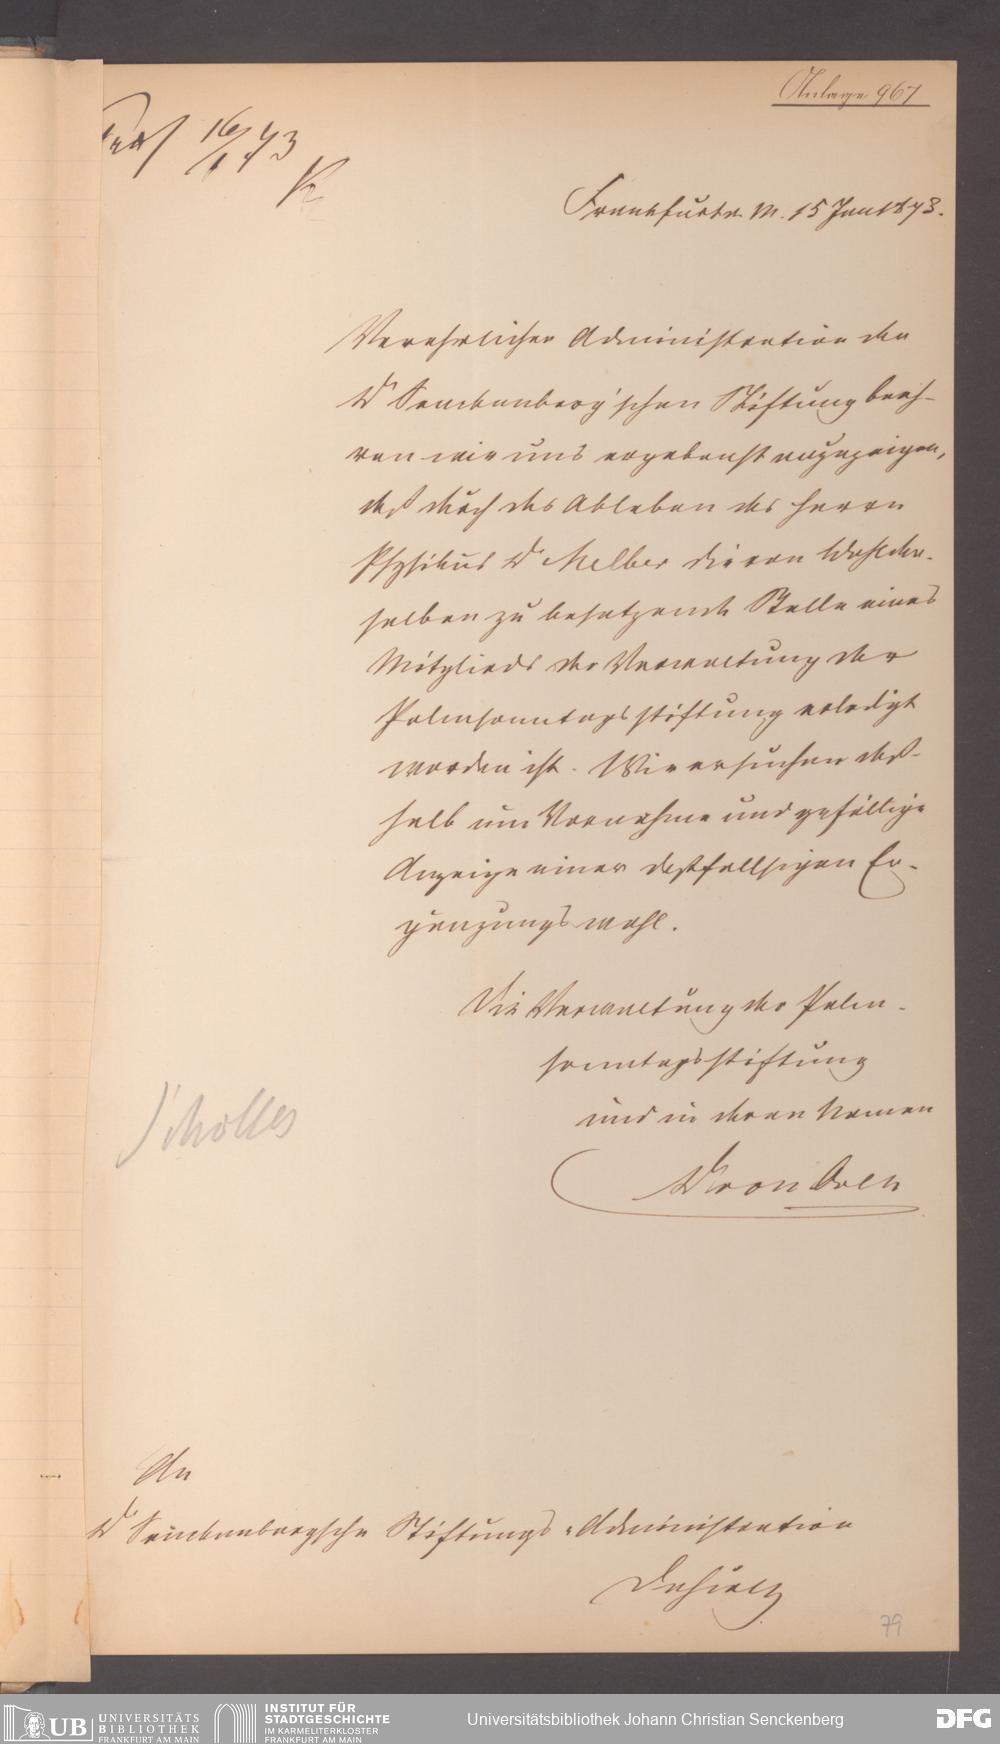 Anlage 967
Präs 16/1 73
Frankfurt a. M. 15 Jan 1873.
Verehrlicher Administration der
Dr Senckenberg'schen Stiftung beeh-
ren wir uns ergebenst anzuzeigen,
daß durch das Ableben des Herrn
Physikus Dr Melber die von Wohlder-
selben zu besetzende Stelle eines
Mitglieds der Verwaltung der
Palmsonntagsstiftung erledigt
worden ist. Wir ersuchen deß-
halb um Vornahme und gefällige
Anzeige einer deßfallsigen Er-
gänzungswahl.
Die Verwaltung der Palm-
sonntagsstiftung
und in deren Namen
Dr von Oven
Scholles
An
Dr Senckenbergsche Stiftungs-Administration
Dahier
79
UB UNIVERSITÄTS
BIBLIOTHEK
FRANKFURT AM MAIN
INSTITUT FÜR
STADTGESCHICHTE
IM KARMELITERKLOSTER
FRANKFURT AM MAIN
Universitätsbibliothek Johann Christian Senckenberg
DFG